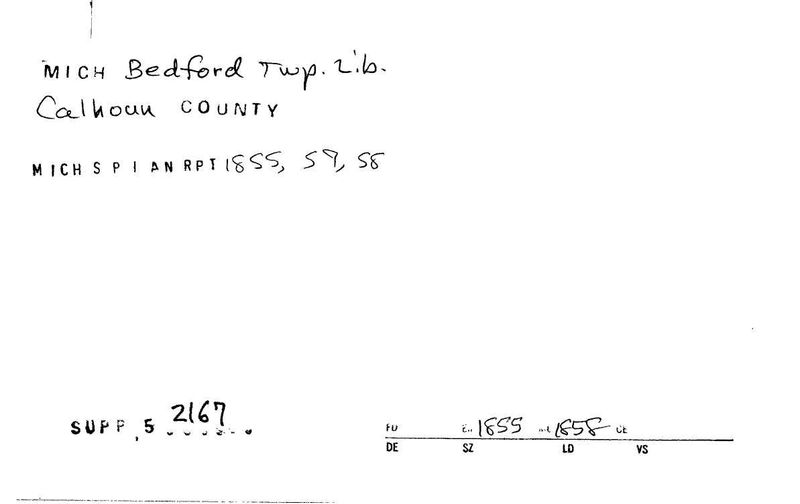 MICH Bedford Twp. Lib.
Calhoun COUNTY
MICH S P I AN RPT 1855, 57, 58
SUPP, 5 2167
FD 1855 1858 CE
DE SZ LD VS